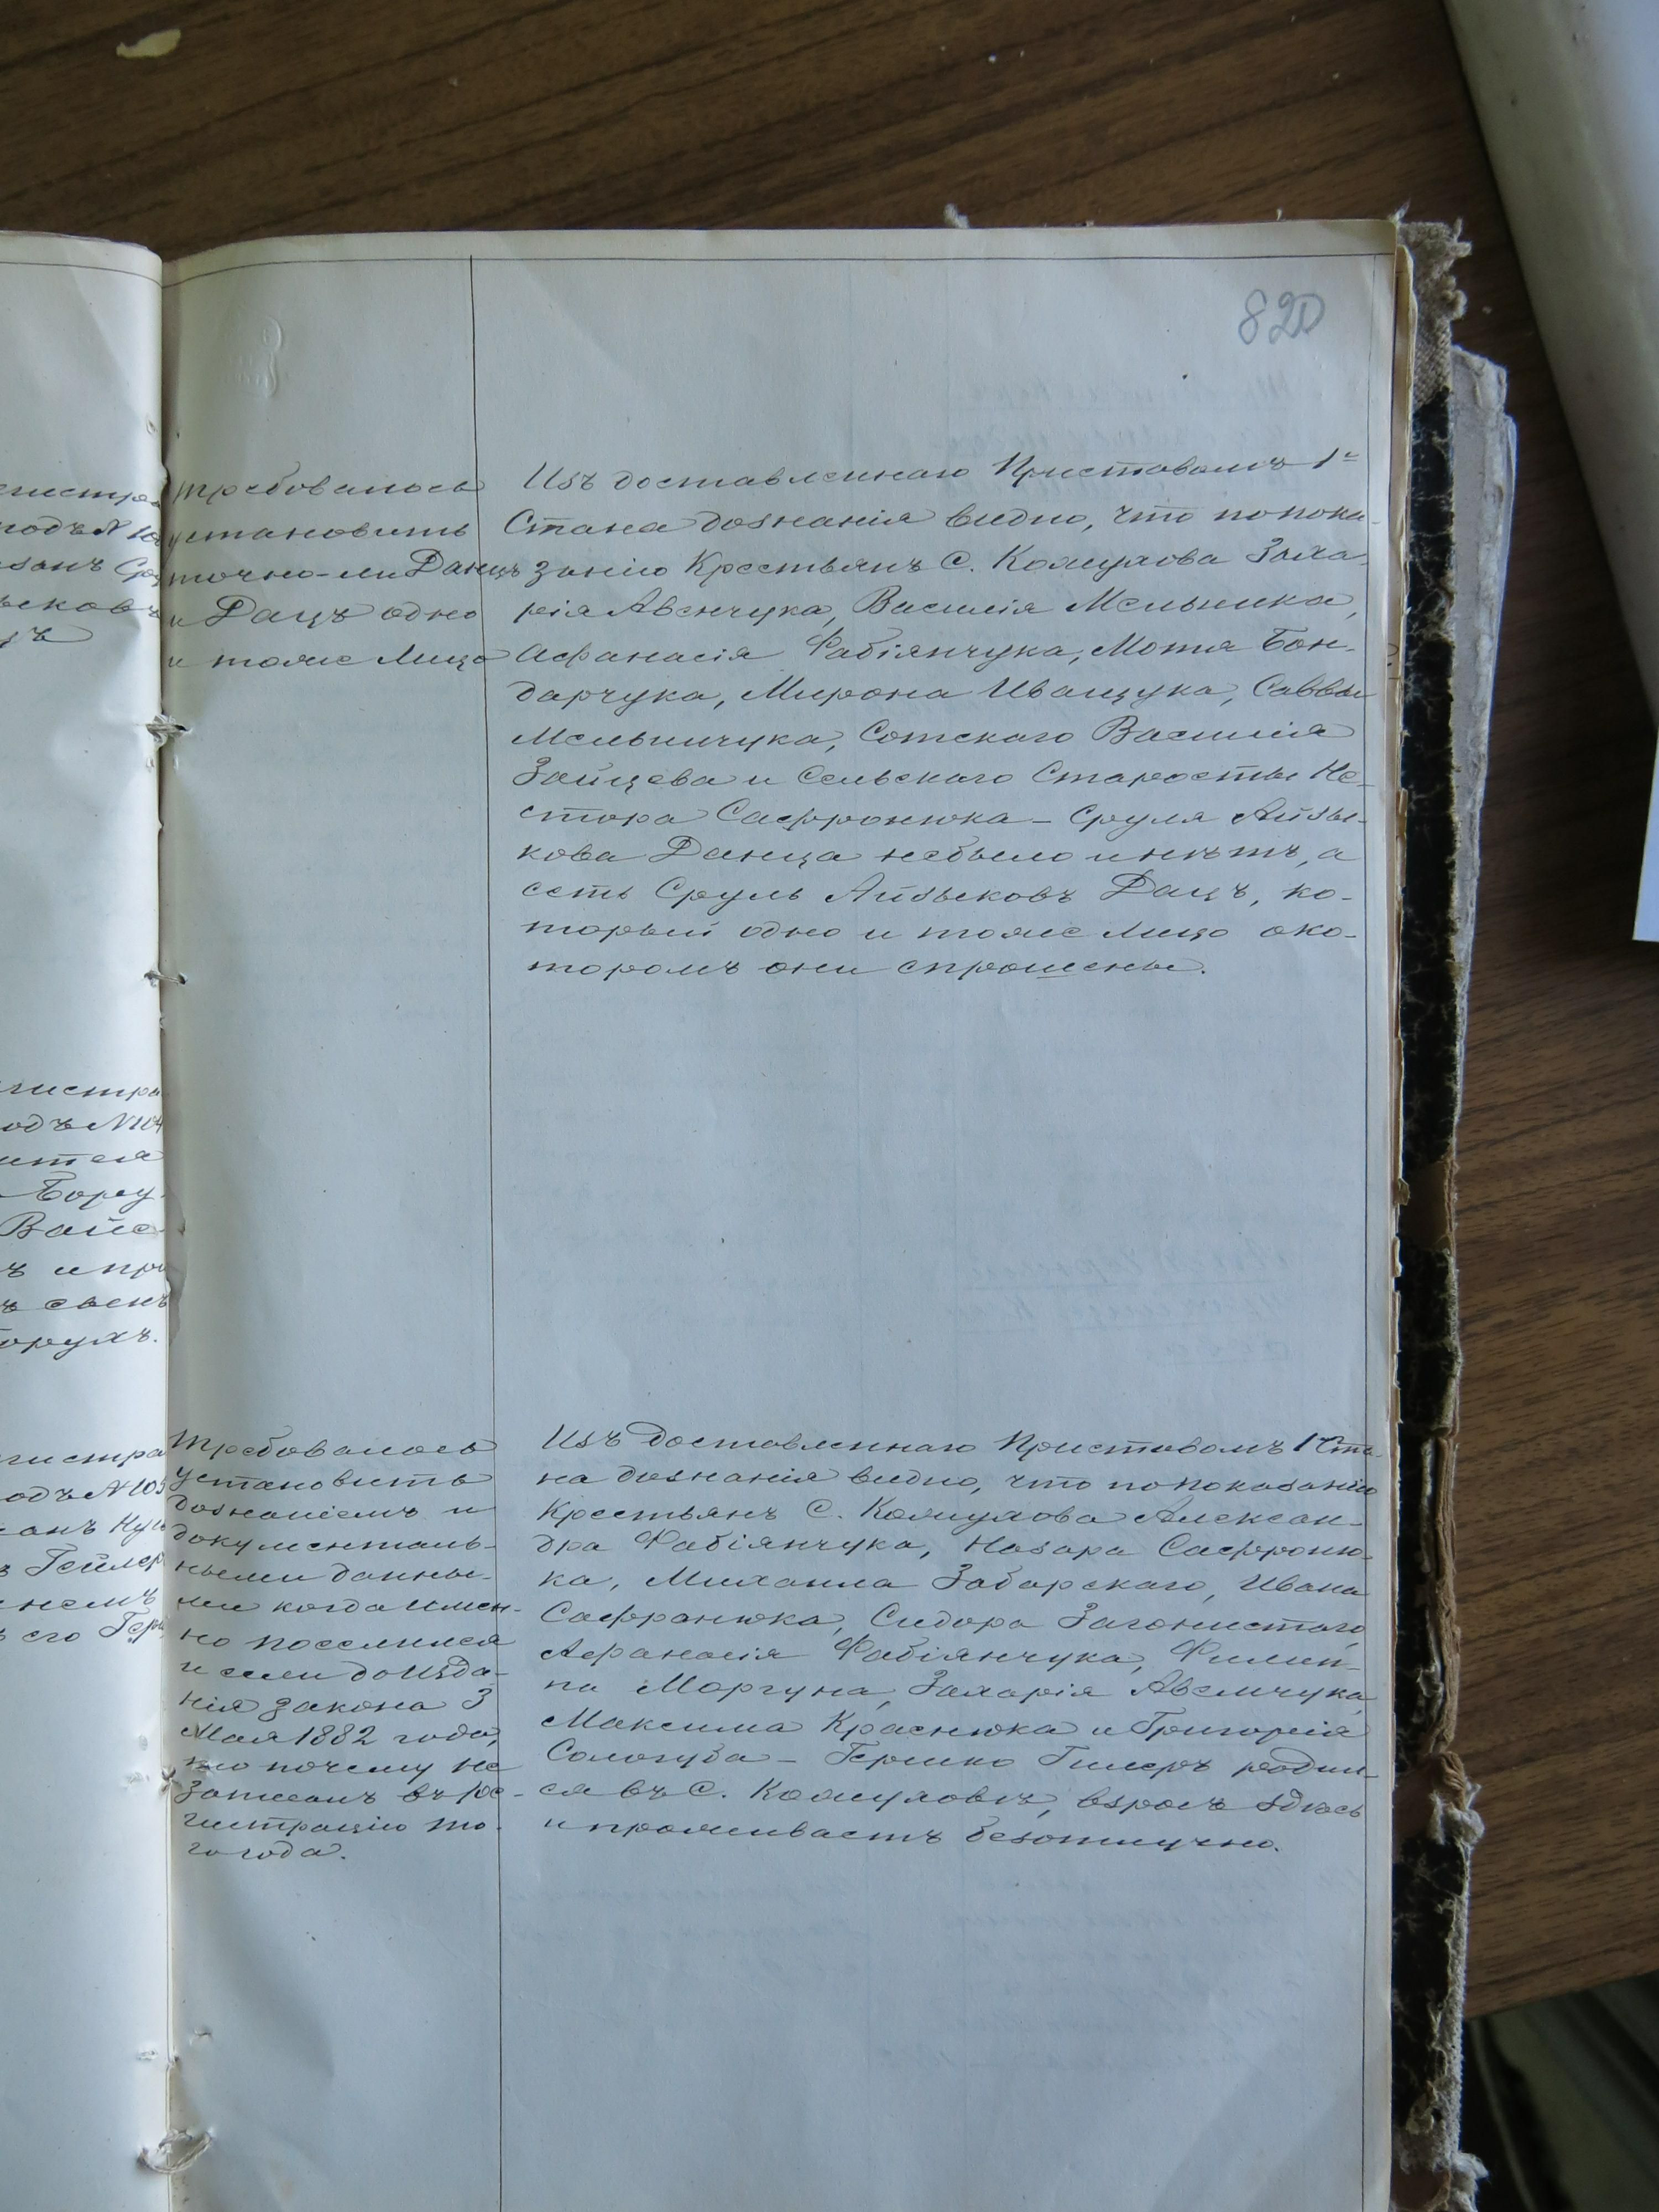 820
требовалось
установить
точно-ли Данцъ
и Дацъ одно
и тоже Лицо
Изъ доставленнаго Приставомъ 1го
Стана дознанія видно, что попока-
занію Крестьянъ С. Кожухова Заха-
рія Авенчука, Василія Мельника,
Афанасія Фабіянчука, Мотя Бон-
дарчука, Мирона Иващука, Саввы
Мельничука, Сотскаго Василія
Зайцева и Сельскаго Старосты Не-
стора Сафронюка - Сруля Айзы-
кова Данца небыло и нѣтъ, а
есть Сруль Айзыковъ Дацъ, ко-
торый одно и тоже лицо око-
торомъ они спрошены.
Требовалось
установить
дознаніемъ и
документаль-
ными данны-
ми когда имен-
но поселился
и если доизда-
нія закона 3
Мая 1882 года,
то почему не
записанъ въ ре-
гистрацію то-
го года.
Изъ доставленнаго Приставомъ 1 Ста-
на дознанія видно, что попоказанію
Крестьянъ С. Кожухова Алексан-
дра Фабіянчука, Назара Сафроню-
ка, Михаила Забарскаго, Ивана
Сафранюка, Сидора Загонистаго,
Афанасія Фабіянчука, Филип-
па Моргуна, Захарія Авемчука,
Максима Краснюка и Григорія
Сологуба - Гершко Гилеръ родил-
ся въ С. Кожуховѣ, взросъ здѣсь
и проживаетъ безотлучно.
гистра
одъ N 104
ителя
Боруx
Вайс
ъ и при
ъ сынъ
орухъ.
гистра
одъ N 105